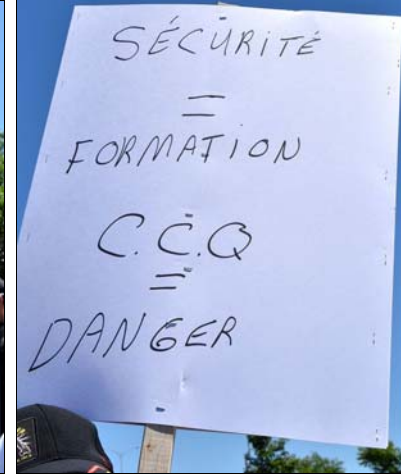 SÉCURiTÉ
=
FORMATiON
C.C.Q
=
DANGER